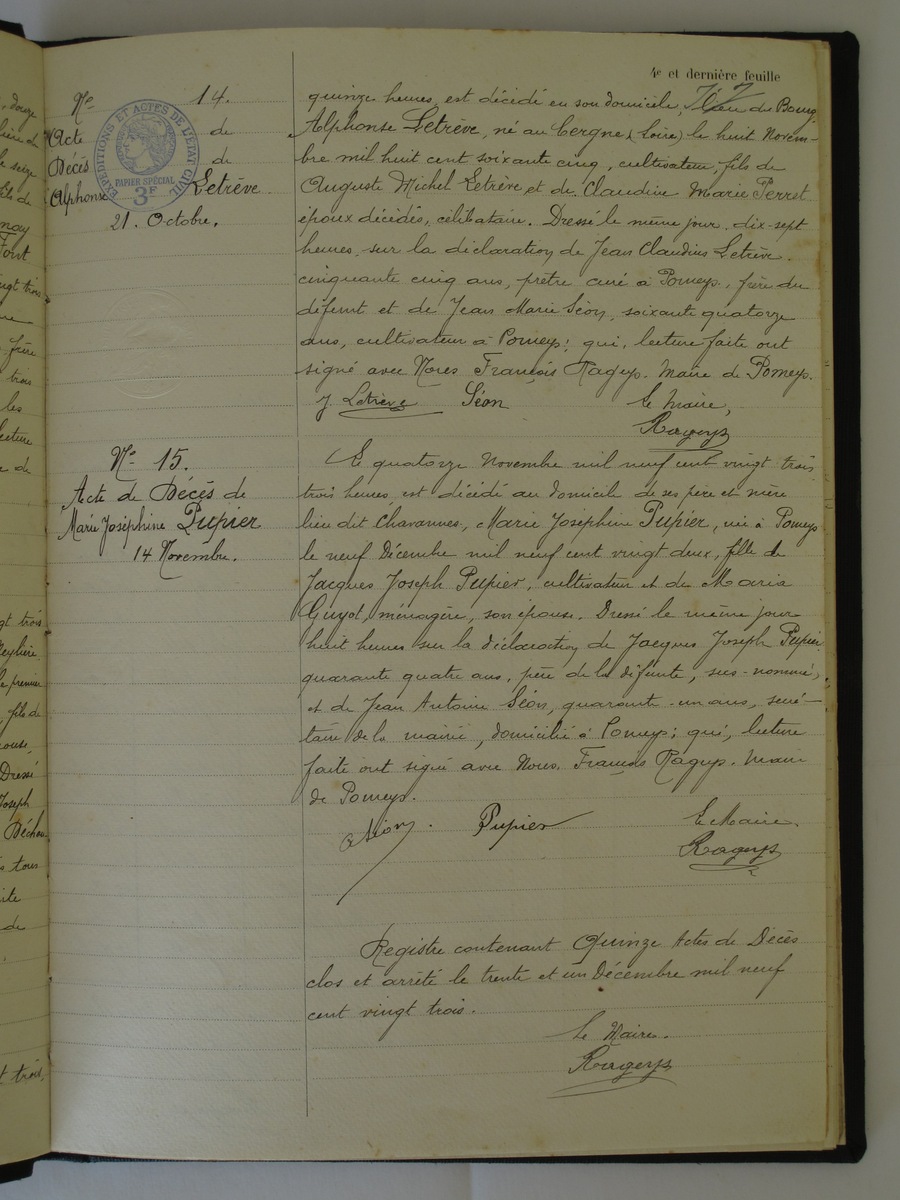 4e et dernière feuille
No 14.
Acte de
Décès de
Alphonse Letrève
21. Octobre.
EXPEDITIONS ET ACTES DE L'ETAT CIVIL
PAPIER SPÉCIAL
3F
quinze heures, est décédé en son domicile, Lieu du Bourg
Alphonse Letrève, né au Cergne (Loire) le huit Novem-
bre mil huit cent soixante cinq, cultivateur, fils de
Auguste Michel Letrève et de Claudine Marie Perret
époux décédés, célibataire. Dressé le même jour, dix-sept
heures, sur la déclaration de Jean Claudius Letrève.
cinquante cinq ans, prêtre curé à Pomeys, frère du
défunt et de Jean Marie Séon, soixante quatorze
ans, cultivateur à Pomeys; qui, lecture faite ont
signé avec Nous François Ragey. Maire de Pomeys.
J. Letrève Séon Le Maire,
Rageys
No 15.
Acte de Décès de
Marie Joséphine Pupier
14 Novembre.
Le quatorze Novembre mil neuf cent vingt trois
trois heures, est décédé au domicile de ses père et mère
lieu dit Chavannes, Marie Joséphine Pupier, née à Pomeys
le neuf Décembre mil neuf cent vingt deux, fille de
Jacques Joseph Pupier, cultivateur et de Maria
Guyot, ménagère, son épouse. Dressé le même jour
huit heures sur la déclaration de Jacques Joseph Pupier
quarante quatre ans, père de la défunte, sus-nommé,
et de Jean Antoine Séon, quarante-un ans, secré-
taire de la mairie, domicilié à Pomeys; qui, lecture
faite ont signé avec Nous, François Rageys. Maire
de Pomeys.
Séon. Pupier Le Maire.
Rageys
Registre contenant Quinze Actes de Décès
clos et arrêté le trente et un Décembre mil neuf
cent vingt trois.
Le Maire.
Rageys